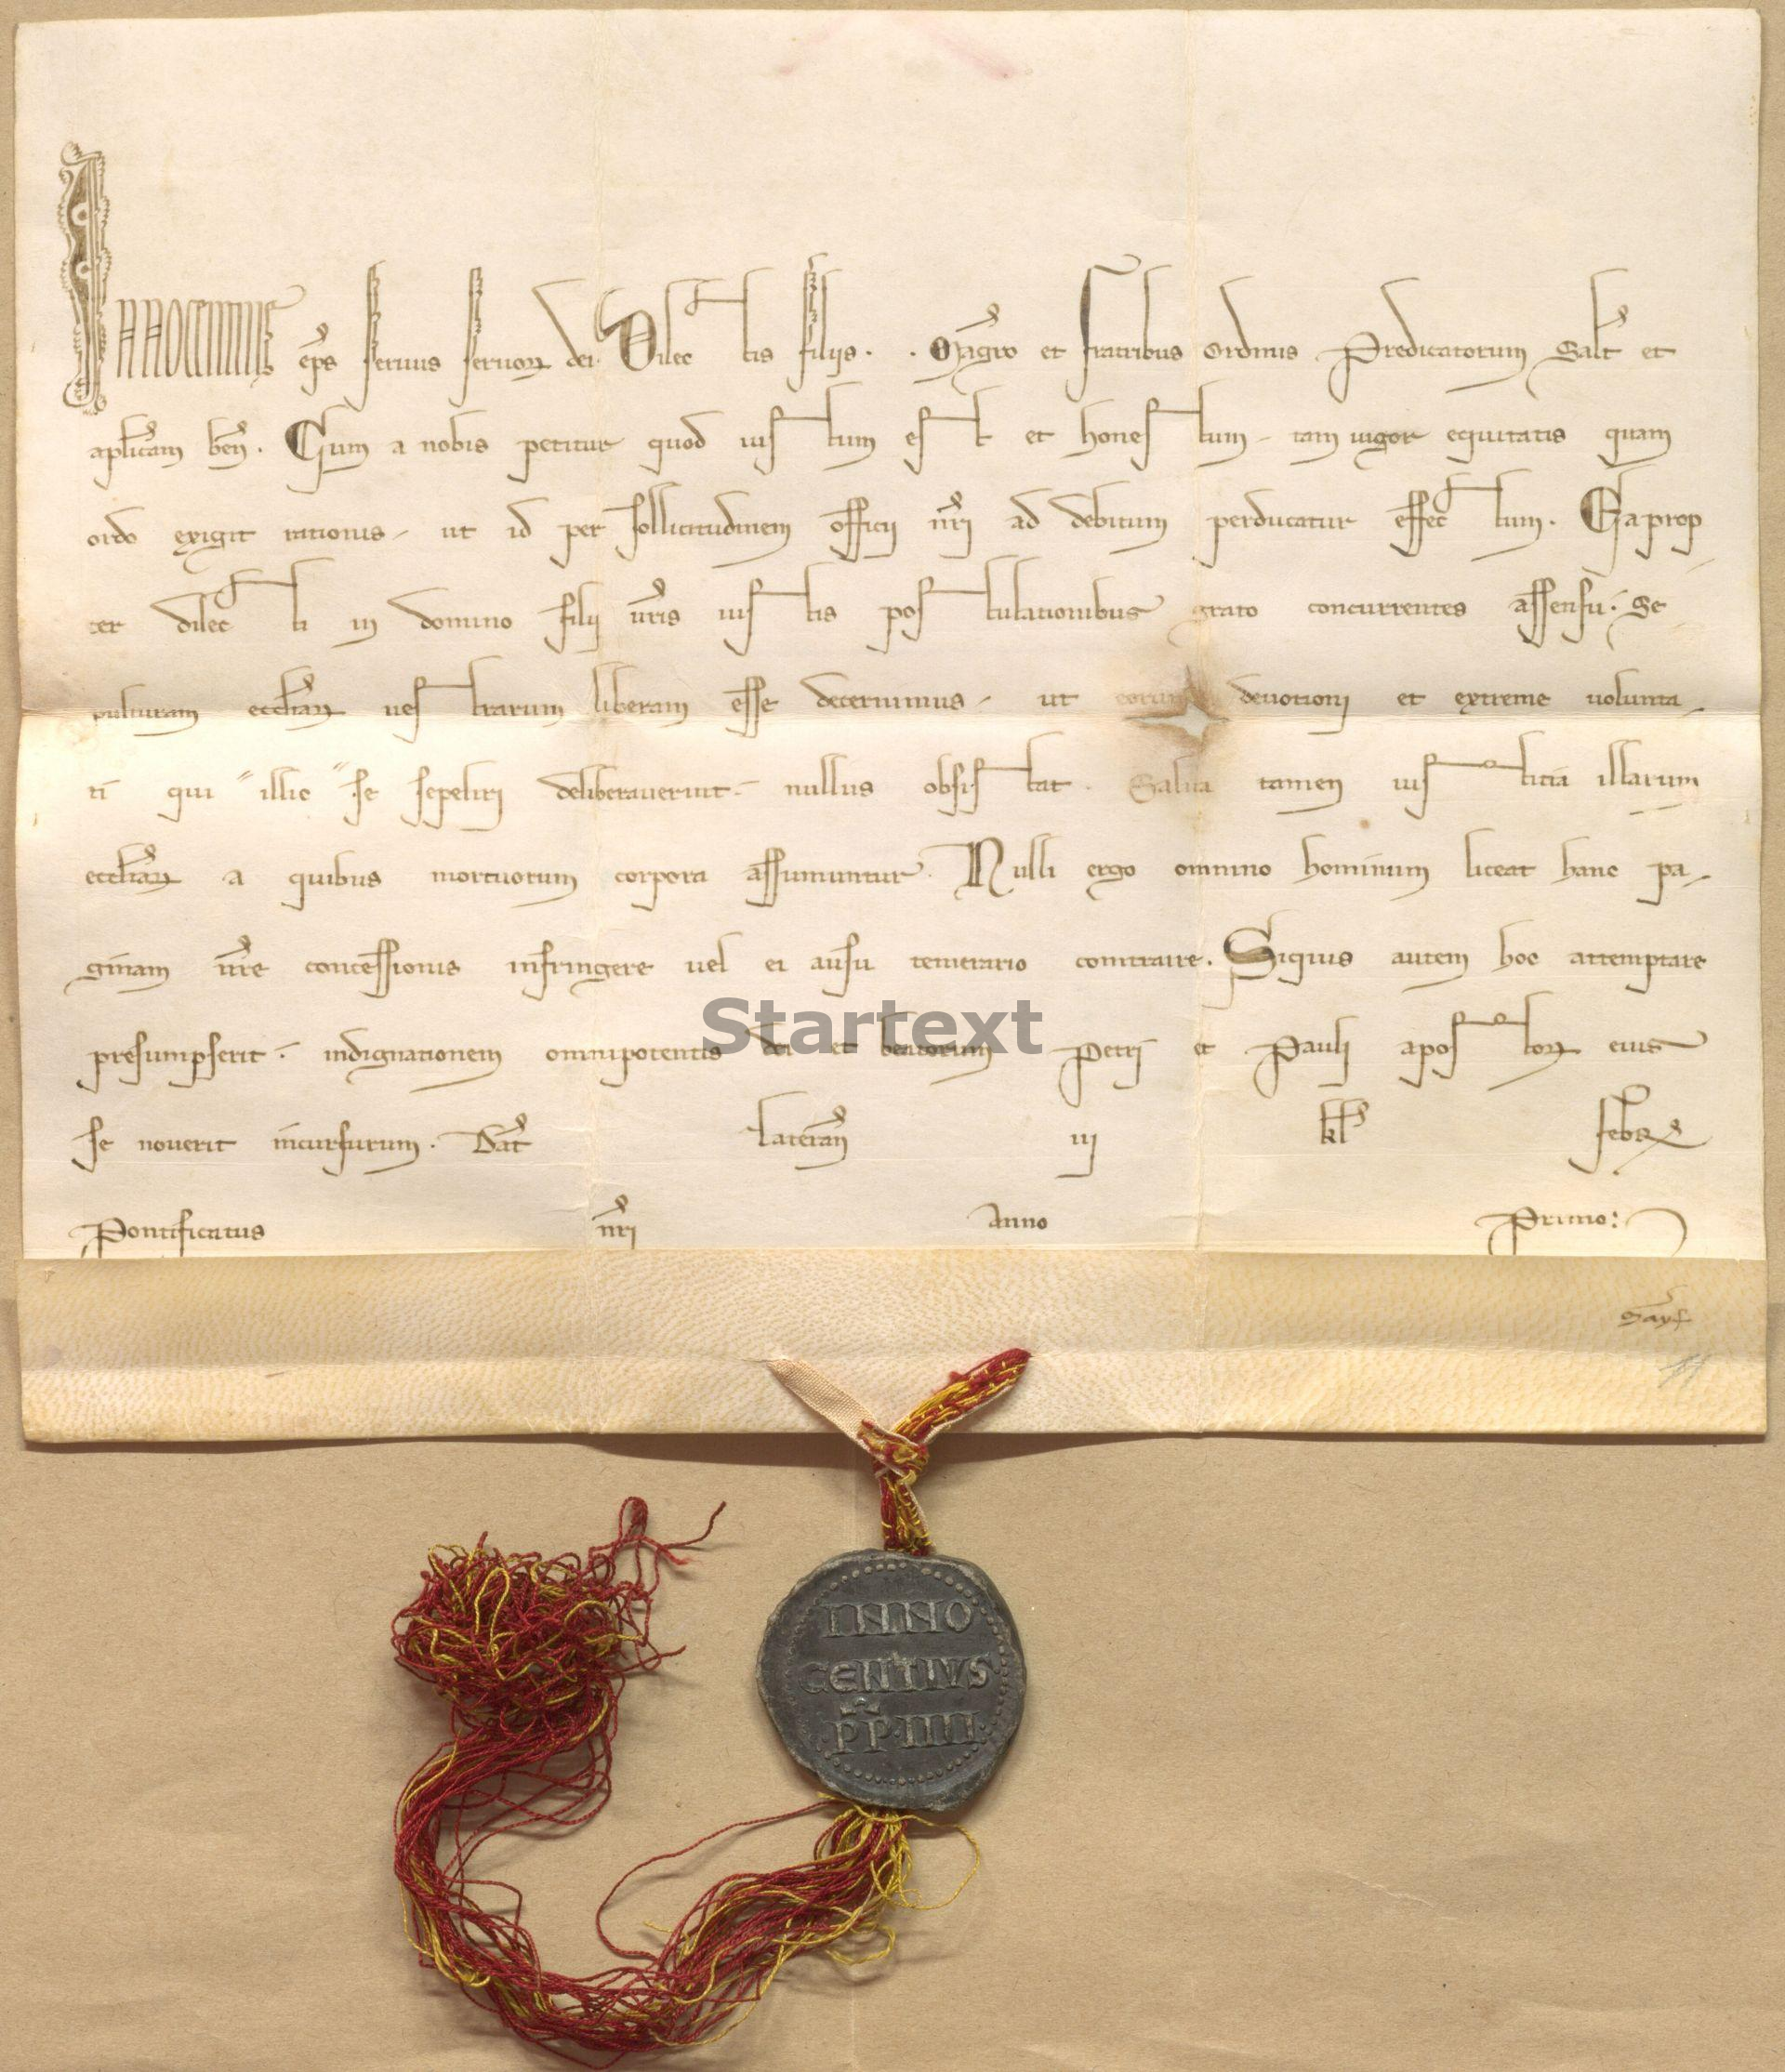 Innocentius eps seruus seruoꝝ dei. Dilectis filijs. . . Magro et fratribus Ordinis Predicatorum Salt et
aplicam ben. Cum a nobis petitur quod iustum est et honestum, tam uigor equitatis quam
ordo exigit rationis, ut id per sollicitudinem officij nri ad debitum perducatur effectum. Eaprop
ter dilecti in domino filij uris iustis postulationibus grato concurrentes assensu. Se
pulturam eccliaꝝ uestrarum liberam esse decernimus, ut eorum deuotioni et extreme uolunta
ti qui illic se sepeliri deliberauerint nullus obsistat. Salua tamen iustitia illarum
eccliaꝝ a quibus mortuorum corpora assumuntur. Nulli ergo omnino hominum liceat hanc pa
ginam nre concessionis infringere uel ei ausu temerario contraire. Siquis autem hoc attemptare
presumpserit indignationem omnipotentis dei et beatorum Petri et Pauli apostoloꝝ eius
se nouerit incursurum. Dat Lateran iij kl febr
Pontificatus nri Anno Primo.
INNO
CENTIVS
PP·IIII·
Startext